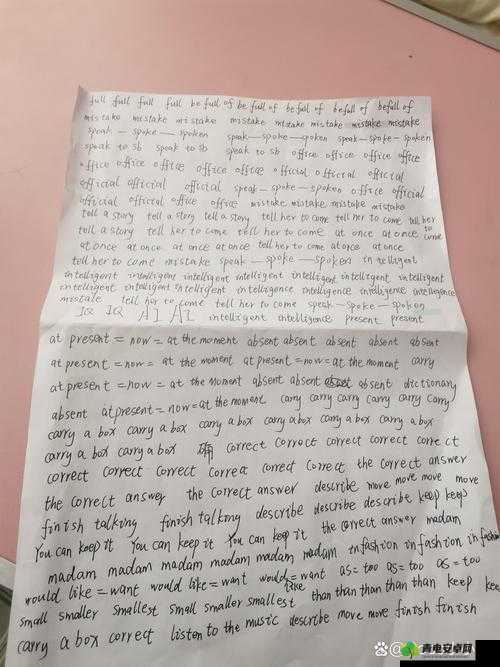 full full full full be full of be full of be full of be full of be full of
mistake mistake mistake mistake mistake mistake mistake mistake
speak — spoke — spoken speak — spoke — spoken speak — spoke — spoken
speak to sb speak to sb speak to sb office office office office
office office office office office office official official official
official official official speak — spoke — spoken office office
official official office office mistake mistake, mistake mistake
tell a story tell a story tell a story tell her to come tell her to come tell her
tell a story tell her to come tell her to come at once at once to come
at once at once at once at once tell her to come at once at once
tell her to come mistake speak — spoke — spoken intelligent
intelligent intelligent intelligent intelligent intelligent intelligent intelligent
intelligent intelligent intelligent intelligence intelligence intelligence
mistake tell her to come tell her to come speak — spoke — spoken
IQ IQ AI AI intelligent intelligence present present
at present = now = at the moment absent absent absent absent absent
at present = now = at the moment at present = now = at the moment carry
at present = now = at the moment absent absent absent dictionary
absent at present = now = at the moment carry carry carry carry carry carry
carry a box carry a box carry a box carry a box carry a box carry a box
carry a box carry a box 确 correct correct correct correct correct
correct correct correct correct correct correct the correct answer
the correct answer the correct answer describe move move move move
finish talking finish talking describe describe describe keep keep
You can keep it You can keep it You can keep it the correct answer madam
madam madam madam madam madam madam in fashion in fashion in fashion
would like = want would like = want would like = want as = too as = too as = too
small smaller smallest small smaller smallest than than than than than keep keep
carry a box correct listen to the music describe move move finish finish
青电安卓网